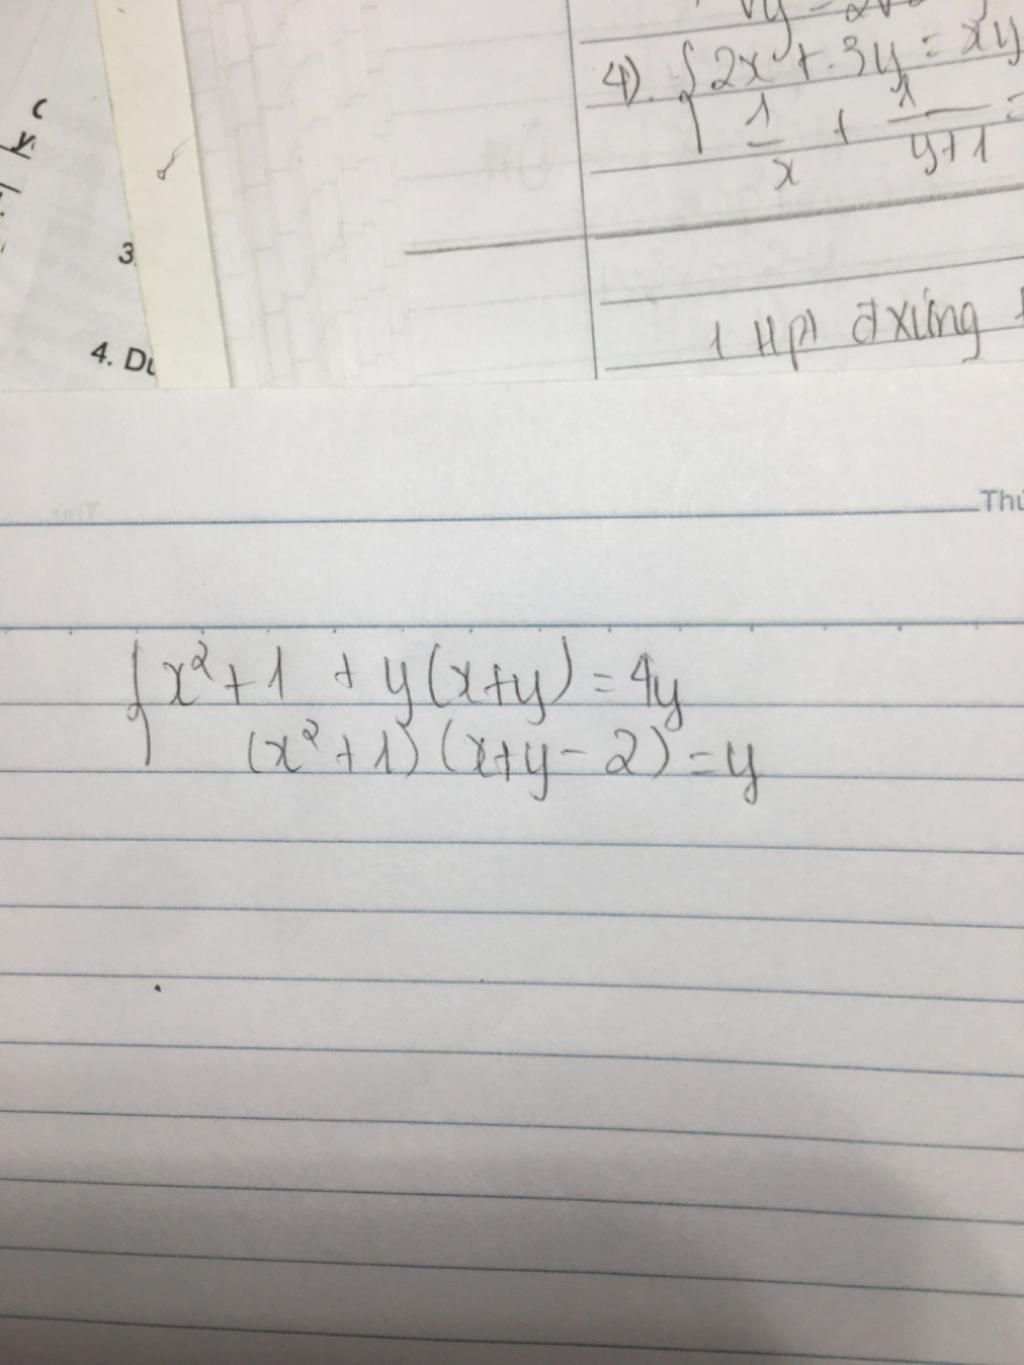 4). { 2x + 3y = xy
1/x + 1/(y+1) =
3.
4.
1 Hpt đxứng
Thứ
{ x² + 1 + y(x+y) = 4y
(x² + 1)(x+y-2) = y